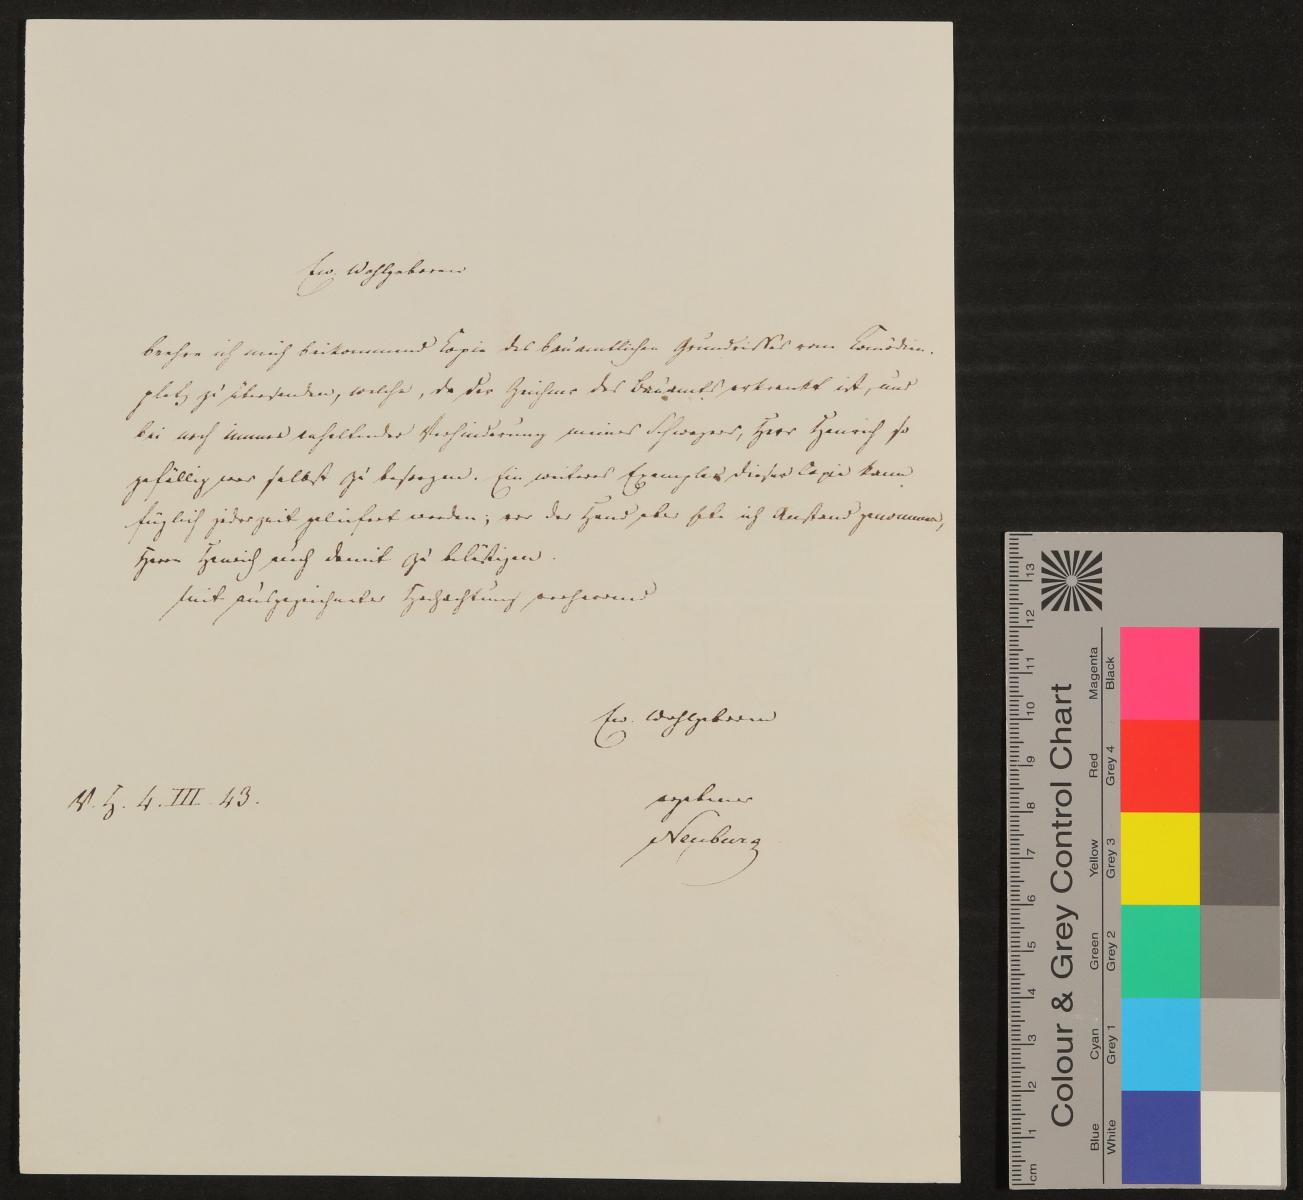 Ew. Wohlgeboren
beehre ich mich beikommend Copie des bauamtlichen Grundrisses vom Comödien-
platz zu übersenden, welche, da der Zeichner des Bauamts erkrankt ist, und
bei noch immer anhaltender Verhinderung meines Schwagers, Herr Henrich so
gefällig war selbst zu besorgen. Ein weiteres Exemplar dieser Copie kann
füglich jederzeit geliefert werden; vor der Hand aber habe ich Anstand genommen,
Herrn Henrich auch damit zu belästigen.
Mit ausgezeichneter Hochachtung verharrend
Ew. Wohlgeboren
V. H. 4. III. 43.
ergebener
Neuburg
13
12
11
10
9
8
7
6
5
4
3
2
1
cm
Colour & Grey Control Chart
Blue Cyan Green Yellow Red Magenta
White Grey 1 Grey 2 Grey 3 Grey 4 Black